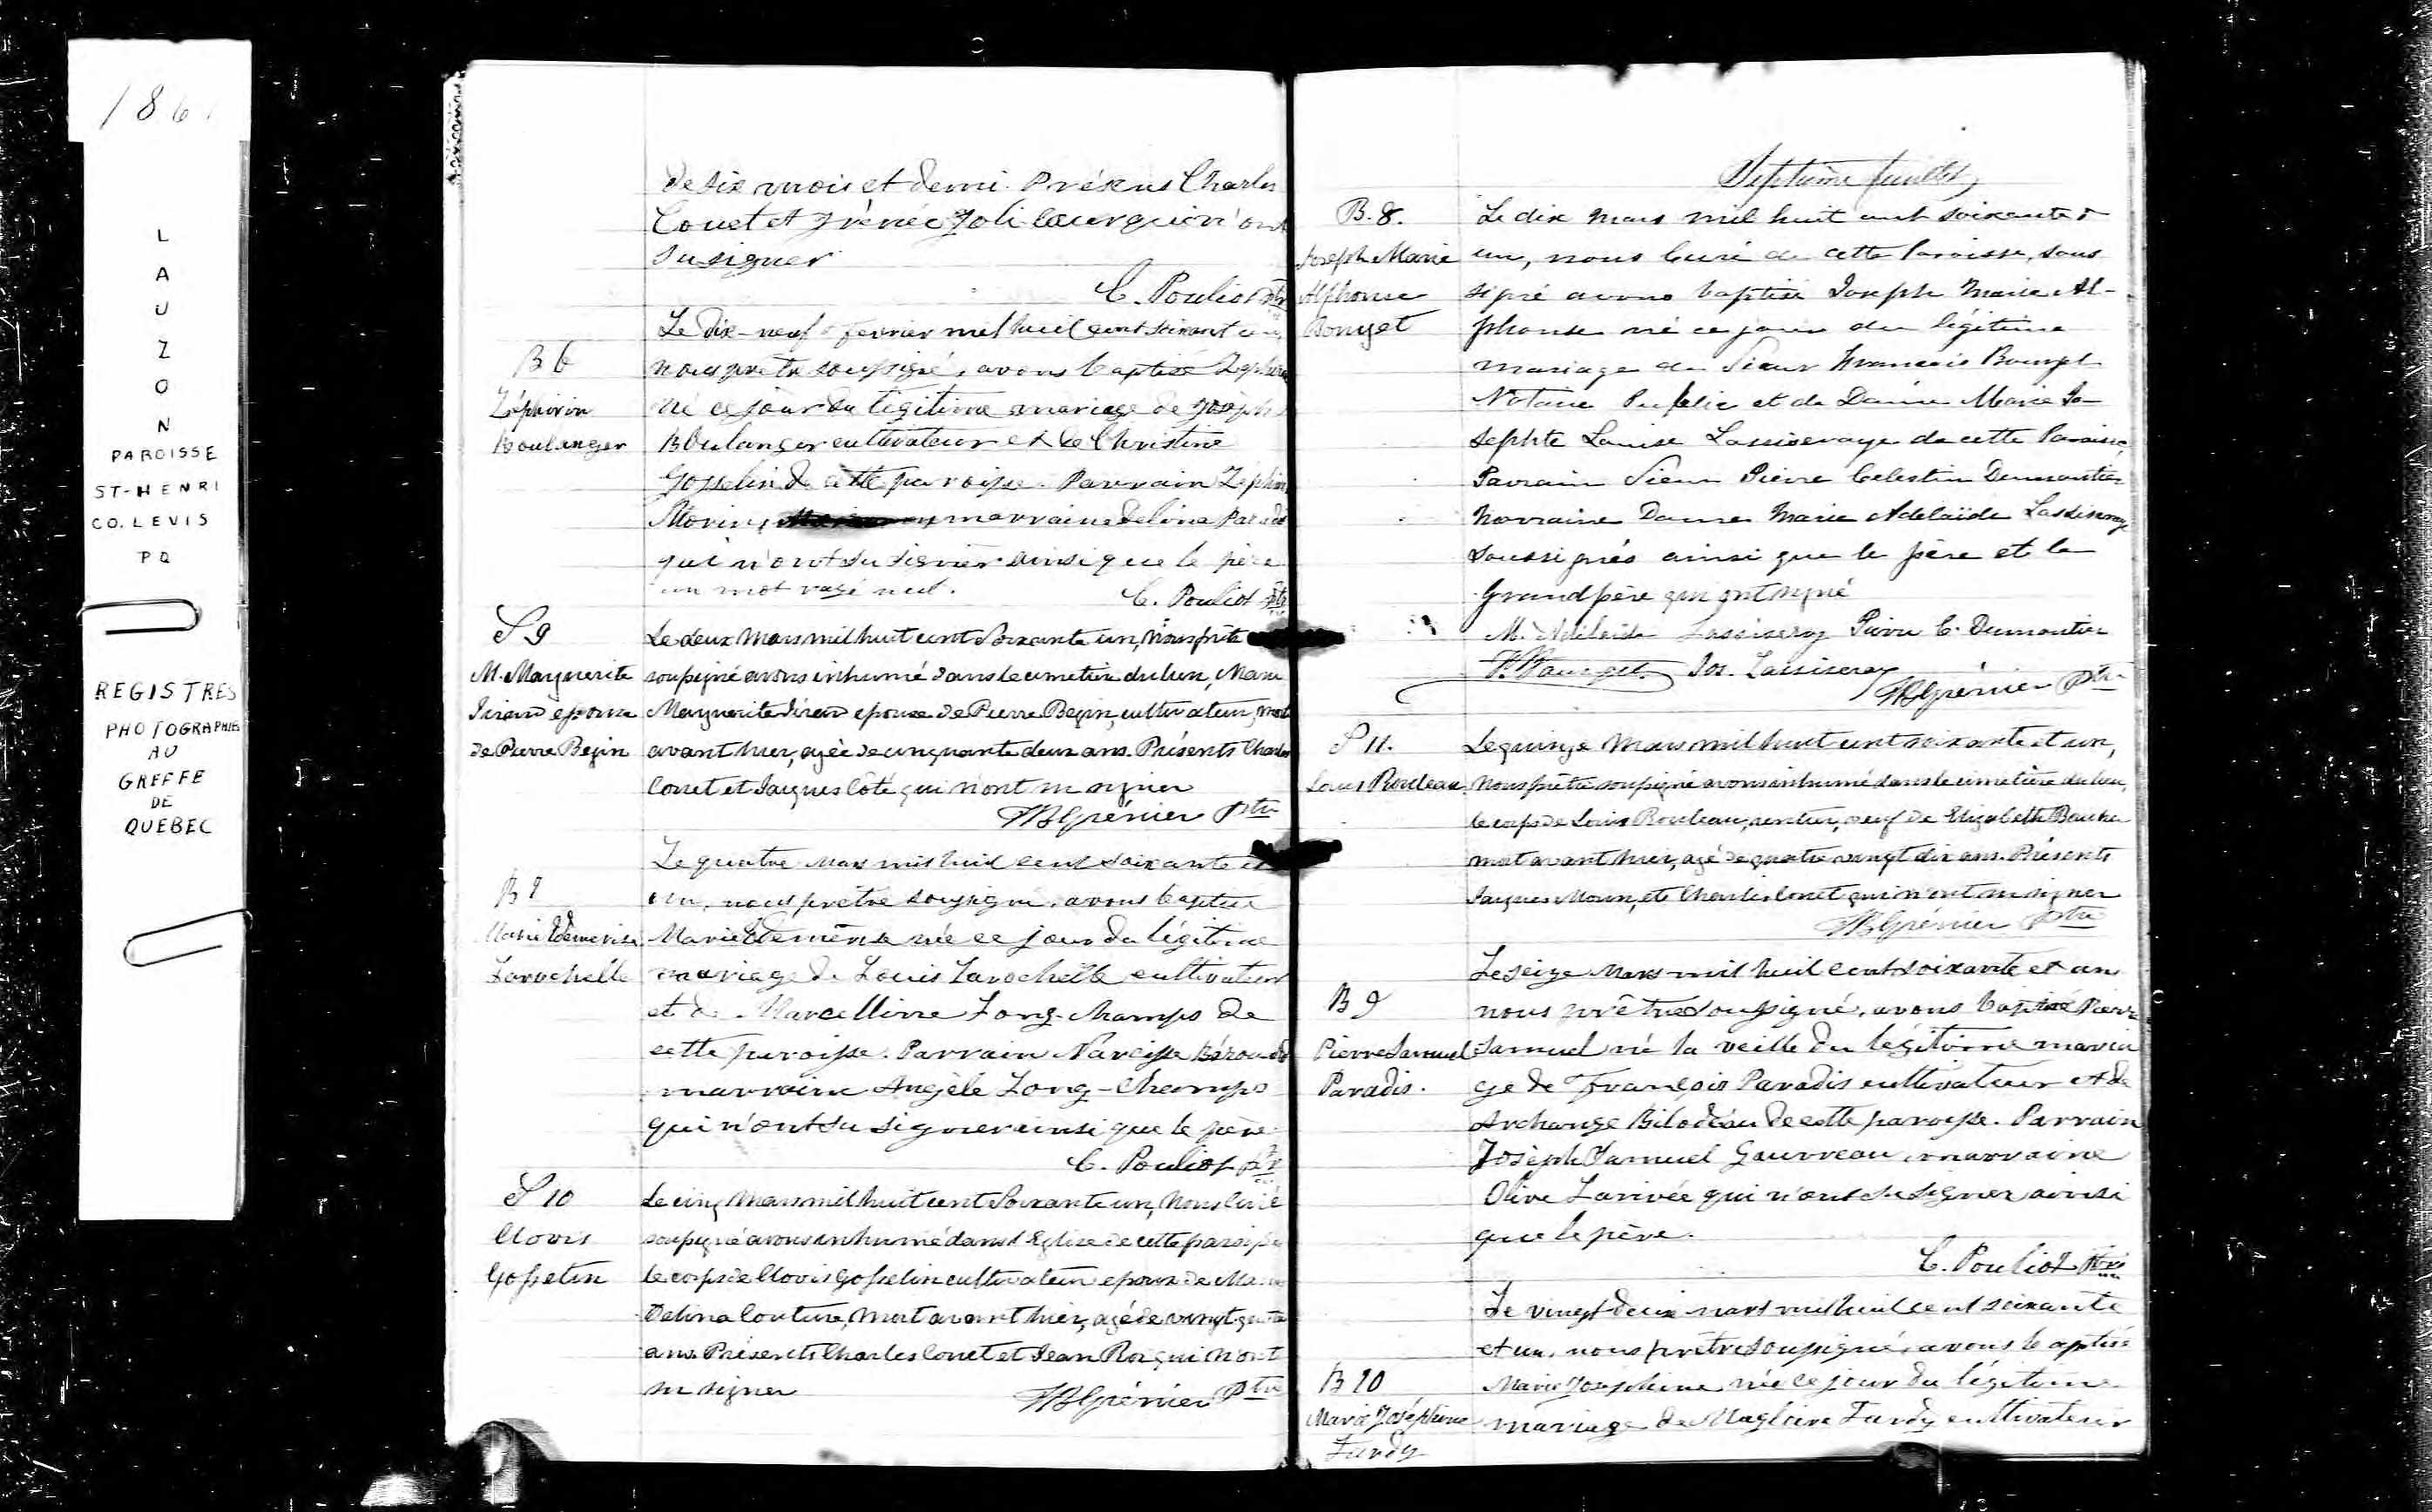 1861
L
A
U
Z
O
N
PAROISSE
ST-HENRI
CO. LEVIS
PQ
REGISTRES
PHOTOGRAPHIÉS
AU
GREFFE
DE
QUEBEC
de six mois et demi. Présens Charles
Couet et Irénée Jolicoeur qui n'ont
su signer
C. Pouliot Ptre
B 6
Zéphirin
Boulanger
Le dix-neuf fevrier mil huit cent soixant
nous prêtre soussigné, avons baptisé Zephirin
né ce jour du légitime mariage de Joseph
Boulanger cultivateur et de Christine
Gosselin de cette paroisse. Parrain Zephirin
Morin, marraine Delina Paradis
qui n'ont su signer ainsi que le père
un mot rayé nul.
C. Pouliot Ptre
S 9
M. Marguerite
épouse
de Pierre Begin
Le deux Mars mil huit cent Soixante un, Nous prêtre
soussigné avons inhumé dans le cimetière du lieu, Marie
Marguerite epouse de Pierre Begin, cultivateur, morte
avant hier, agée de cinquante deux ans. Présents Charles
Couet et Jacques Côté qui n'ont su signer
JBGrénier Ptre
B 7
Larochelle
Le quatre Mars mil huit cent soixante et
un, nous prêtre soussigné, avons baptisé
Marie née ce jour du légitime
mariage de Louis Larochelle cultivateur
et de Marcelline Long-champs de
cette paroisse. Parrain Narcisse
marraine Angèle Long-Champs
qui n'ont su signer ainsi que le père
C. Pouliot Ptre
S 10
Clovis
Gosselin
Le cinq Mars mil huit cent Soixante un, Nous Curé
soussigné avons inhumé dans l'Eglise de cette paroisse
le corps de Clovis Gosselin cultivateur epoux de Marie
Delina Couture, mort avant hier, agé de vingt-quatre
ans. Présents Charles Couet et Jean Roi qui n'ont
su signer
JBGrénier Ptre
Septième feuillet
B. 8.
Joseph Marie
Alphonse
Bourget
Le dix Mars mil huit cent soixante &
un, nous Curé de cette Paroisse, sous
signé avons baptisé Joseph Marie Al-
phonse né ce jour du légitime
mariage de Sieur François Bourget
Notaire Public et de Dame Marie Jo-
sephte Louise Lassiseraye de cette Paroisse,
Parrain Sieur Pierre Celestin Dumontier
Marraine Dame Marie Adelaïde Lassiseraye
soussignés ainsi que le père et le
Grand père qui ont signé
M. Adélaïde Lassiseray Pierre C. Dumontier
F. Bourget. Jos. Lassiseray
JBGrénier Ptre
S 11.
Louis Rouleau
Le quinze Mars mil huit cent soixante et un,
Nous prêtre soussigné avons inhumé dans le cimetière du lieu,
le corps de Louis Rouleau, rentier, veuf de Elizabeth
mort avant hier, agé de quatre vingt dix ans. Présents
Jacques Morin, et Charles Couet qui n'ont su signer
JBGrénier Ptre
B 9
Pierre Samuel
Paradis.
Le seize Mars mil huit cent soixante et un
nous prêtre soussigné, avons baptisé Pierre
Samuel né la veille du légitime maria
ge de François Paradis cultivateur et de
Archange Bilodeau de cette paroisse. Parrain
Joseph Samuel Gauvreau, marraine
Olive Larivée qui n'ont su signer ainsi
que le père.
C. Pouliot Ptre
B 10
Marie Joséphine
Tardy
Le vingt-deux mars mil huit cent soixante
et un, nous prêtre soussigné, avons baptisé
Marie Josephine née ce jour du légitime
mariage de Magloire Tardy cultivateur